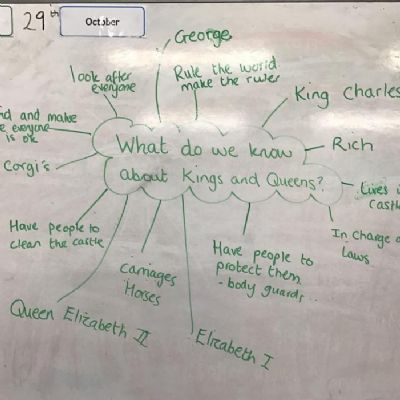 29th
October
George
look after
everyone
Rule the world
make the rules
King Charles
and make
everyone
is ok
Corgi's
What do we know
about Kings and Queens?
Rich
Lives
Castle
In Charge
Laws
Have people to
clean the castle
Carriages
Horses
Have people to
protect them
- body guards...
Queen Elizabeth II
Elizabeth I